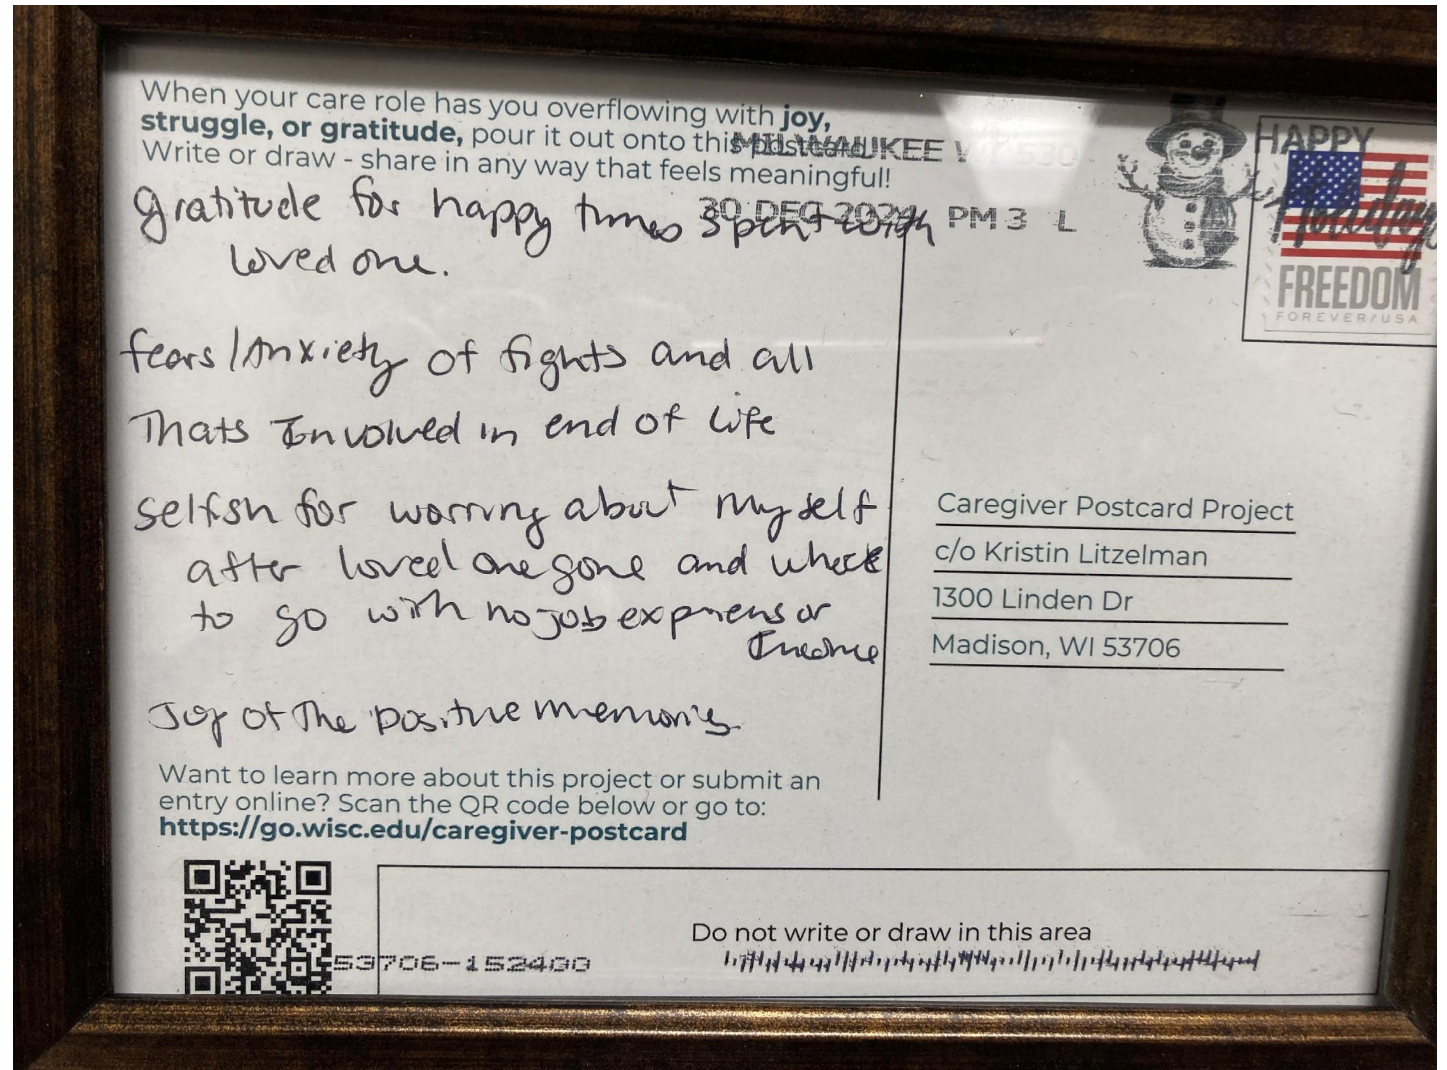 When your care role has you overflowing with joy,
struggle, or gratitude, pour it out onto this postcard.
Write or draw - share in any way that feels meaningful!
MILWAUKEE WI 530
30 DEC 2024 PM 3 L
HAPPY
Holidays
FREEDOM
FOREVER/USA
Gratitude for happy times spent with
loved one.
fears/Anxiety of fights and all
Thats Involved in end of life
Selfsh for worring about myself
after loved one gone and where
to go with no job experiens or
Income
Joy of The positive memories
Caregiver Postcard Project
c/o Kristin Litzelman
1300 Linden Dr
Madison, WI 53706
Want to learn more about this project or submit an
entry online? Scan the QR code below or go to:
https://go.wisc.edu/caregiver-postcard
Do not write or draw in this area
53706-152400